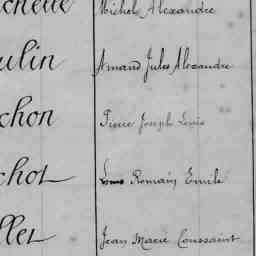 chelle Michel Alexandre
ulin Amand Jules Alexandre
chon Pierre Joseph Louis
chot Romain Emile
llet Jean Marie Toussaint